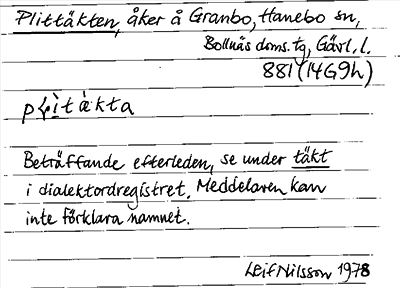 Plittäkten, åker å Granbo, Hanebo sn,
Bollnäs doms. tg, Gävl. l.
881 (14G9h)
Beträffande efterleden, se under täkt
i dialektordregistret. Meddelaren kan
inte förklara namnet.
Leif Nilsson 1978